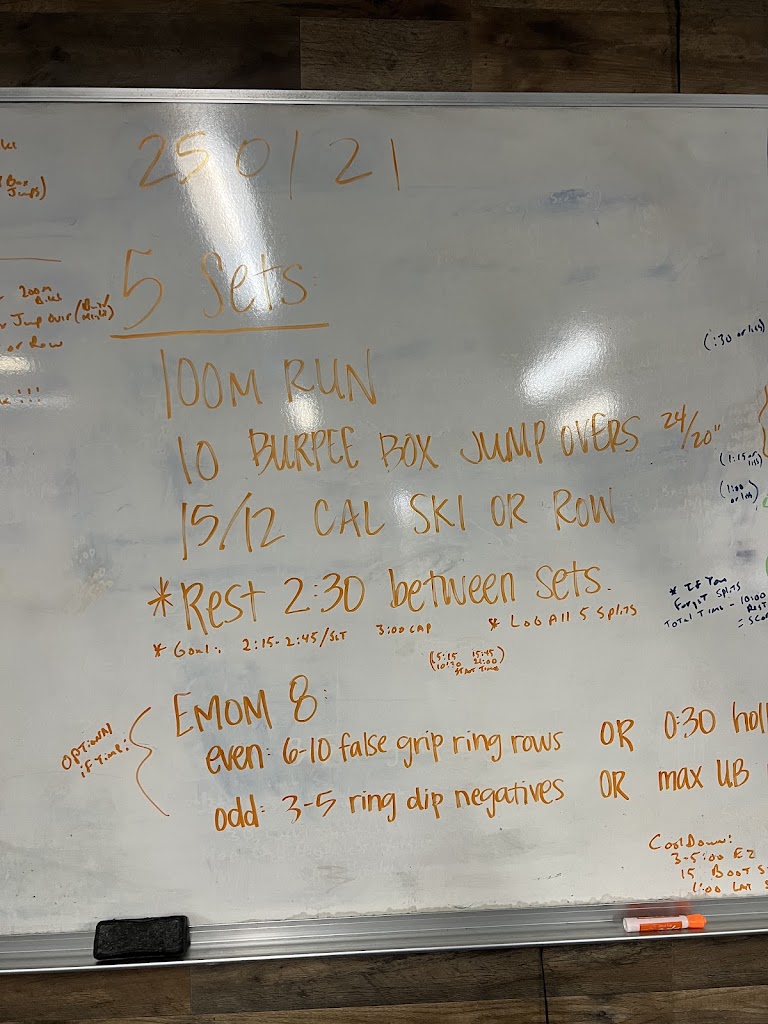 250121
5 Sets:
100M RUN
10 BURPEE BOX JUMP OVERS 24/20"
15/12 CAL SKI OR ROW
*Rest 2:30 between sets.
* Goal: 2:15-2:45/SET 3:00 CAP * Log All 5 Splits
(5:15 15:45
10:30 21:00
Start Time)
Optional if Time:
EMOM 8:
even: 6-10 false grip ring rows OR 0:30 holl
odd: 3-5 ring dip negatives OR max UB
CoolDown:
3-5:00 EZ
15 Boot S
1:00 Lat S
200m
Jump Over
or Row
!!!
(:30 or less)
(1:15 or less)
(1:00 or less)
* If You
Forgot Splits
Total Time - 10:00
Rest
= Scor